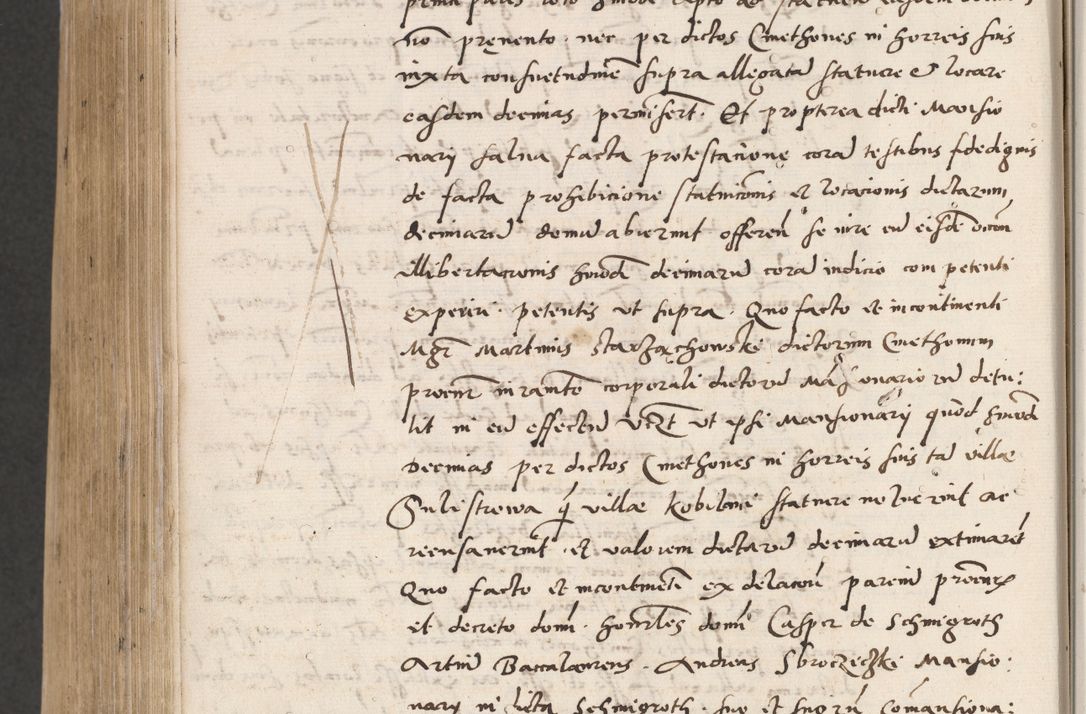 nō pręuento . nec per dictos Cmethones in horreis suis
iuxta consuetudinē supra allegatā statuere & locare
easdem decimas permiserūt . Et propterea dicti Mansio
narij salua facta protestacione corā testibus fidedignis
de facta prohibicione statuicionis et locacionis dictarum
decimarū domū abierunt offereñ se iure eū eisdē
illibertacionis hmodi decimarū corā iudicio competenti
experiri . petentis ut supra . Quo facto et incontinenti
Mgr̄ Martinus Starzachowski dictorum Cmethonum
procur̄ iuramt̄o corporali dictorū Mansionariorū detu:
lit in eū effectū vz̄t ut ipsi Mansionarij quod hmodi
Decimas per dictos Cmethones in horreis suis tā villae
Sulistrowa q̄ villae Kobilani statuere noluerint ac
recusauerint . et valorem dictarū decimarū extimarēt
Quo facto et incontinēti ex delacoñ parciū
et decreto domi . honrles domi Casper de Schmigroth
Artiū Baccalaureus . Andreas Sbroczeczki Mansio:
narij in dicta Schmigroth . suo et suorū Comansiona: